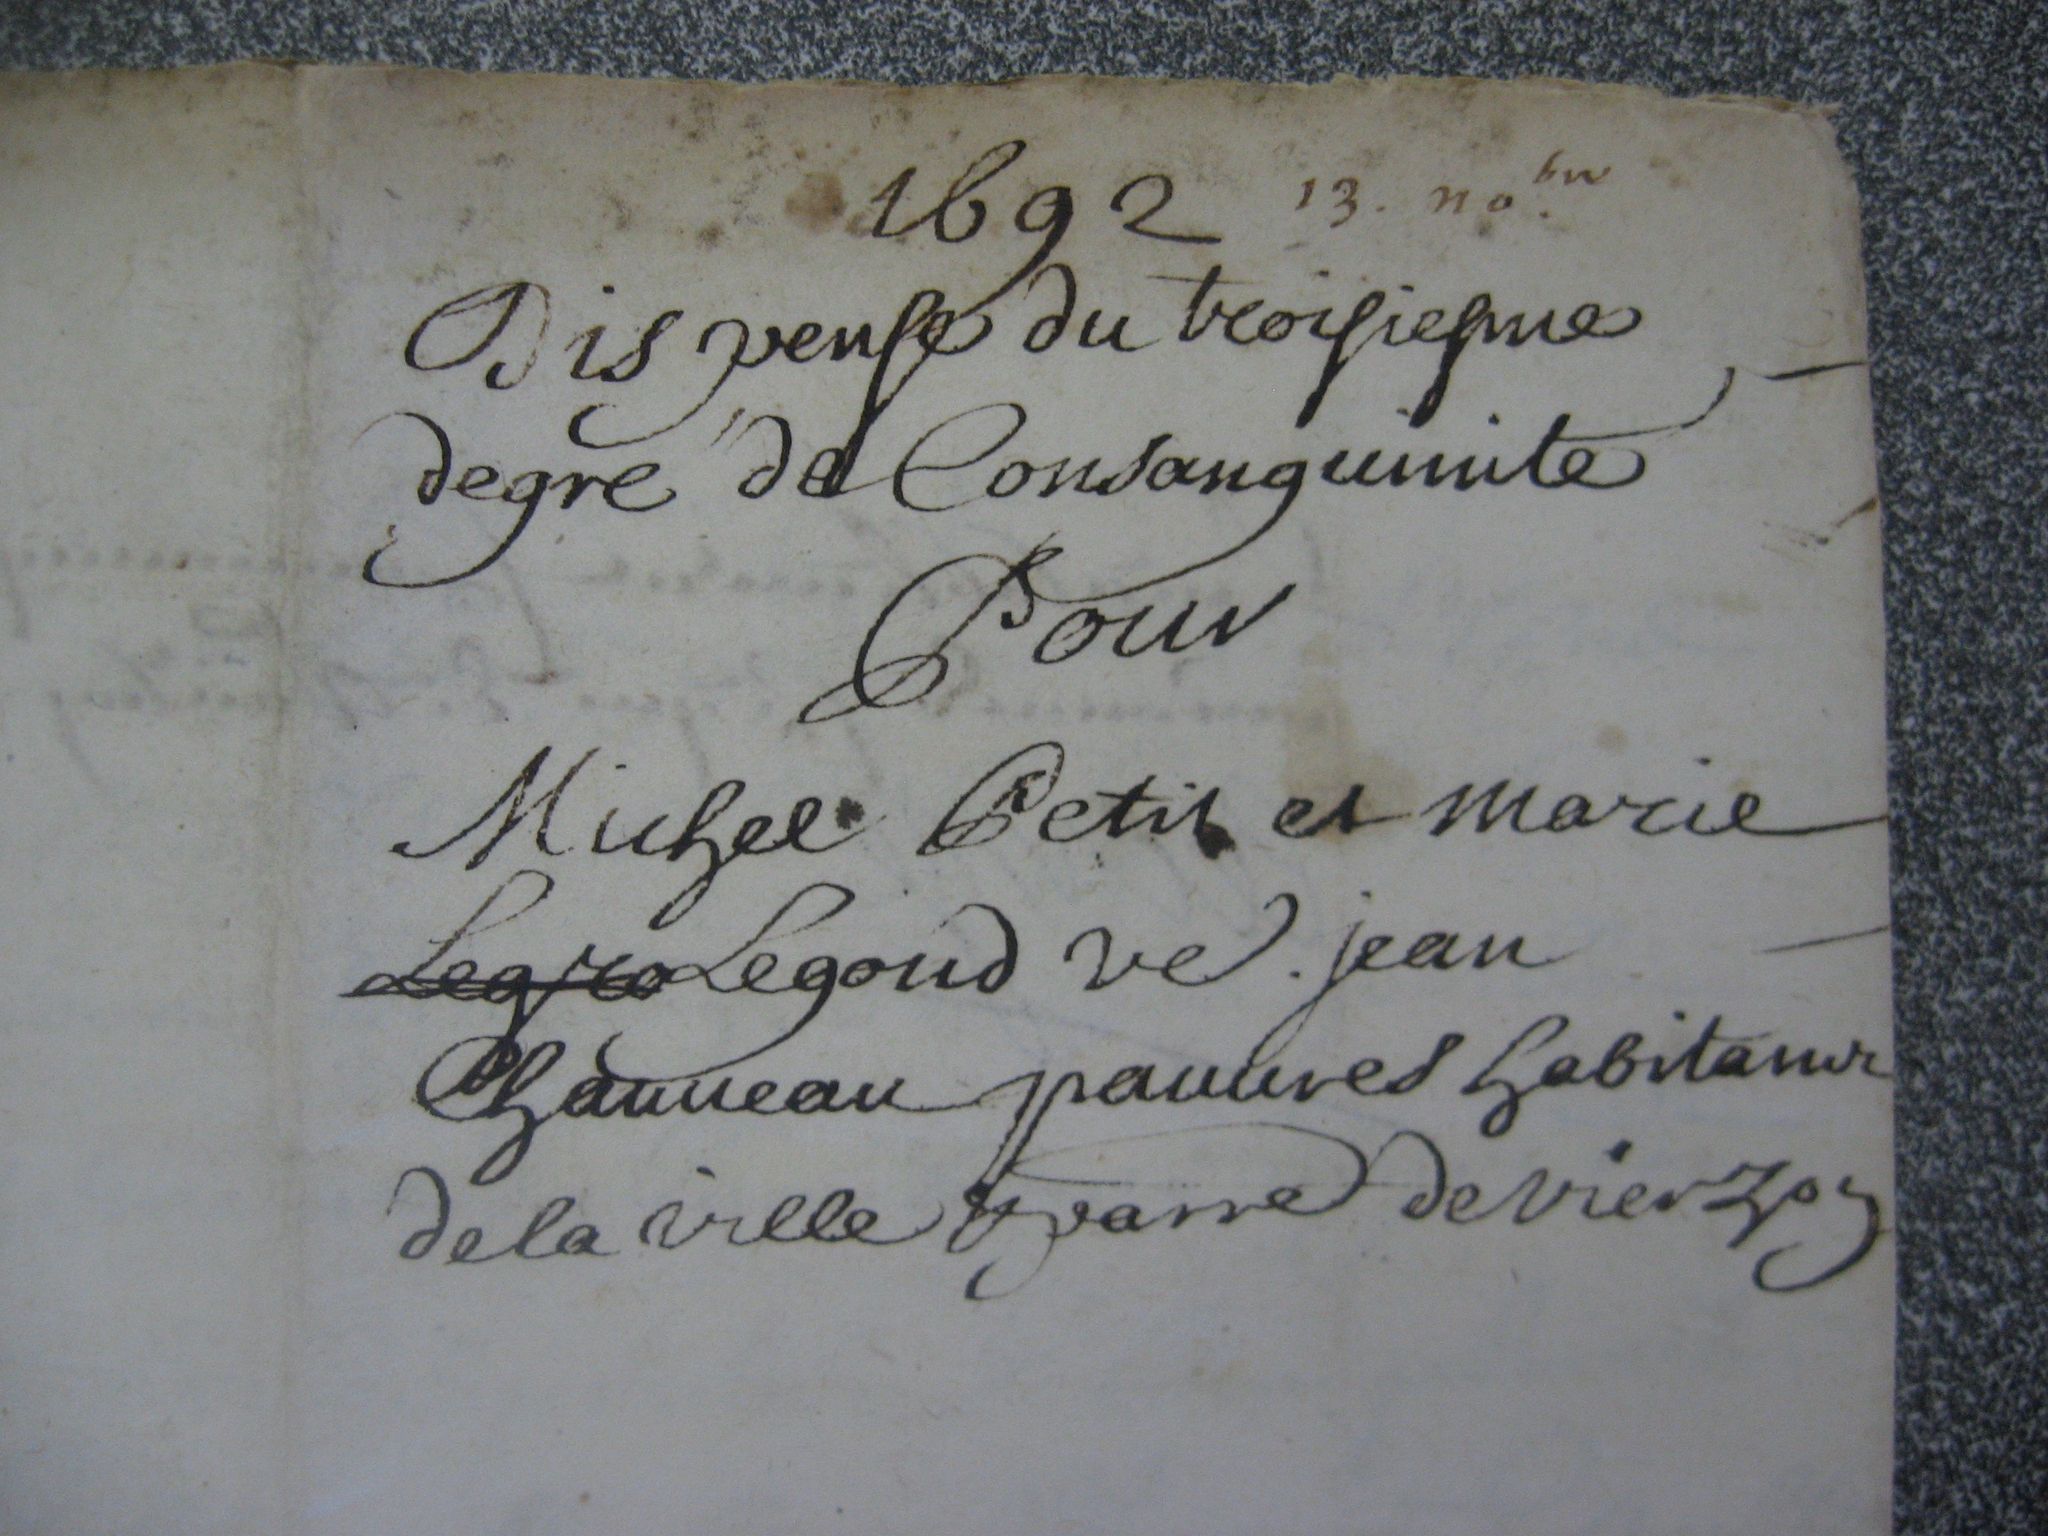 1692 13. no.bre
Dispense du troisiesme
degré de Consanguinite
Pour
Michel Petit et Marie
Legro Legoud ve. jean
Chauueau pauures habitans
de la ville & parre de Vierzon